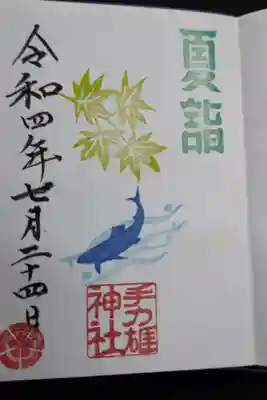 夏詣
令和四年七月二十四日
手力雄
神社